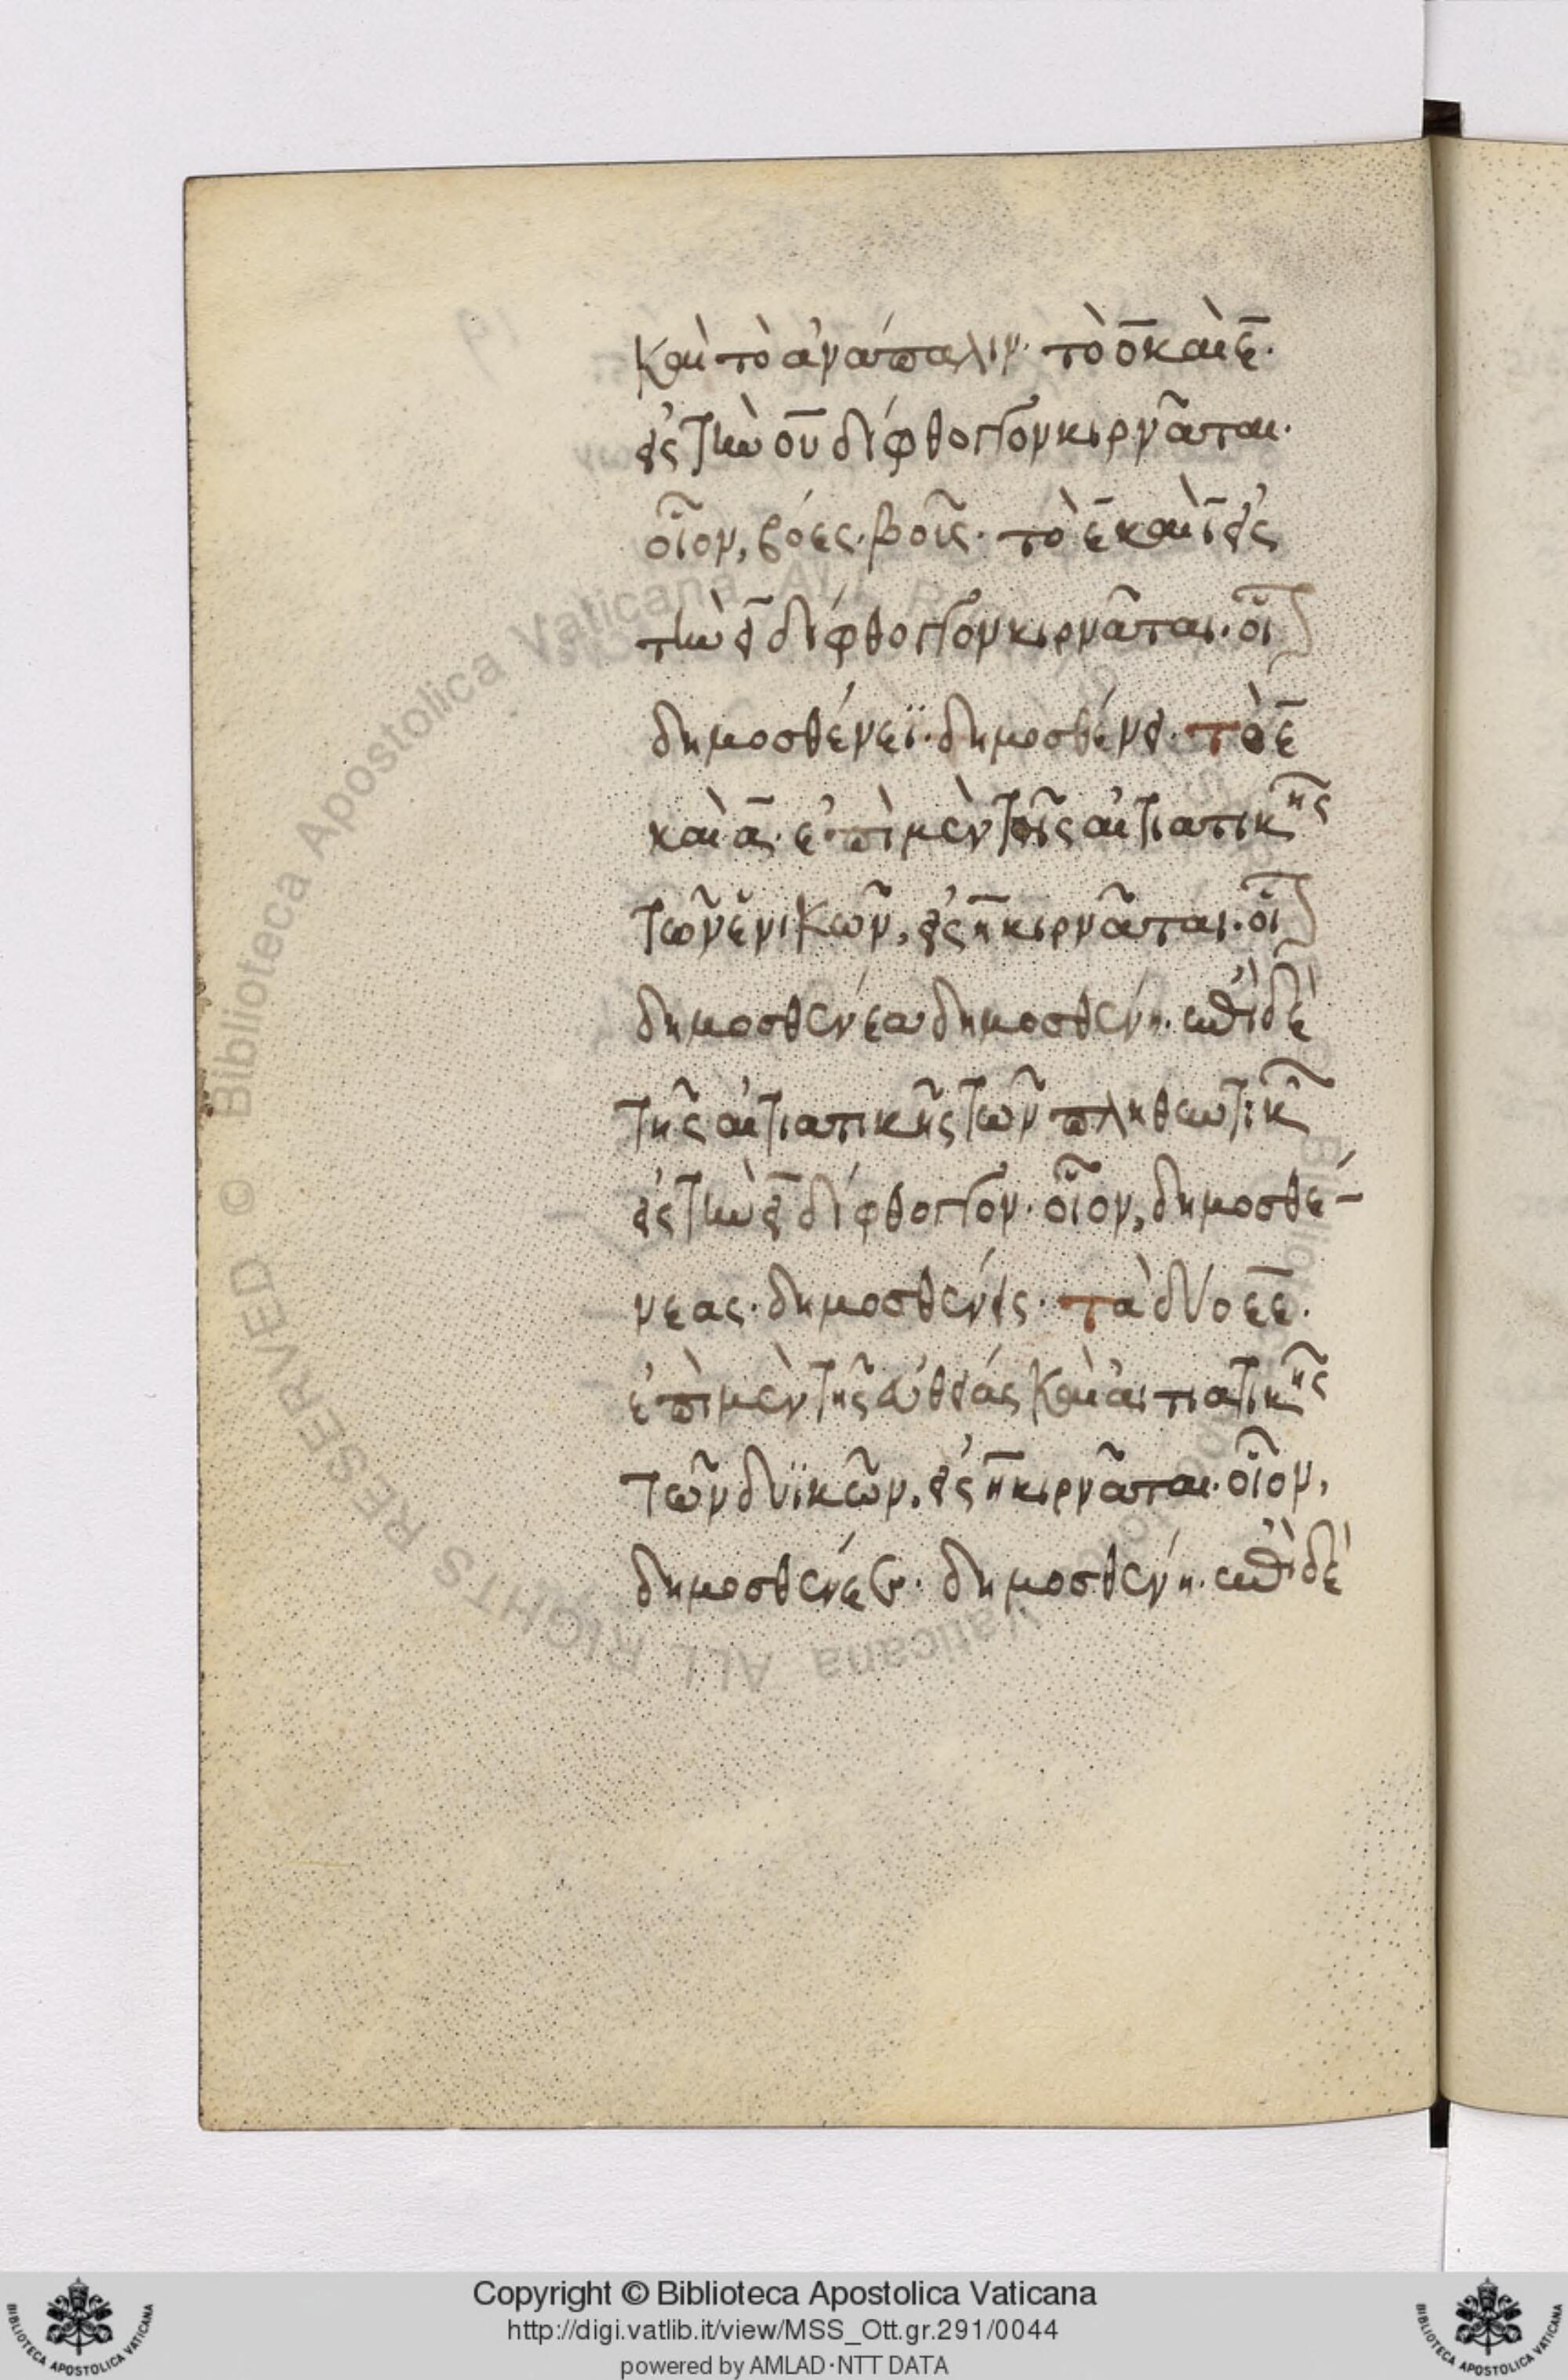 καὶ τὸ ἀνάπαλιν· τὸ ο̄ καὶ ε̄·
εἰς τὴν ου̅ δίφθογγον κιρνᾶται·
οἷον, βόες· βοῦς· τὸ ε̄ καὶ ῑ εἰς
τὴν ει̅ δίφθογγον κιρνᾶται· οἷ
δημοσθένεϊ· δημοσθένει· τὸ ε̄
καὶ ᾱ· ἐπὶ μὲν τῆς αἰτιατικῆς
τῶν ἑνικῶν, εἰς η̄ κιρνᾶται· οἷ
δημοσθένεα δημοσθένη· ἐπὶ δὲ
τῆς αἰτιατικῆς τῶν πληθυντικ
εἰς τὴν ει̅ δίφθογγον· οἷον, δημοσθέ-
νεας· δημοσθένεις· τὰ δύο εε̅·
ἐπὶ μὲν τῆς εὐθείας καὶ αἰτιατικῆς
τῶν δυϊκῶν, εἰς η̄ κιρνᾶται· οἷον,
δημοσθένεε· δημοσθένη· ἐπὶ δὲ
Copyright © Biblioteca Apostolica Vaticana
http://digi.vatlib.it/view/MSS_Ott.gr.291/0044
powered by AMLAD·NTT DATA